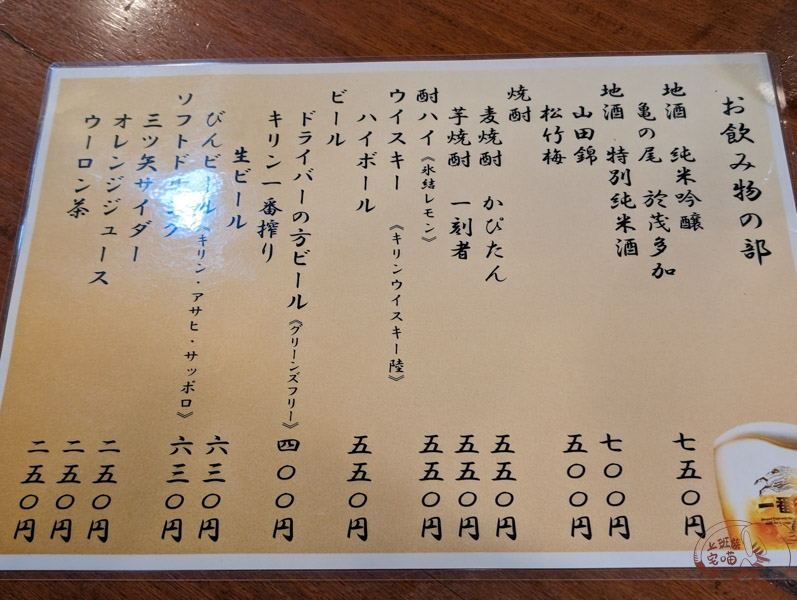 お飲み物の部
地酒 純米吟醸
亀の尾 於茂多加
七五〇円
地酒 特別純米酒
七〇〇円
山田錦
松竹梅
五〇〇円
焼酎
麦焼酎 かぴたん
五五〇円
芋焼酎 一刻者
五五〇円
酎ハイ《氷結レモン》
五五〇円
ウイスキー《キリンウイスキー陸》
ハイボール
五五〇円
ビール
ドライバーの方ビール《グリーンズフリー》
四〇〇円
キリン一番搾り
生ビール
六三〇円
びんビール《キリン・アサヒ・サッポロ》
六三〇円
ソフトドリンク
三ツ矢サイダー
二五〇円
オレンジジュース
二五〇円
ウーロン茶
二五〇円
一番